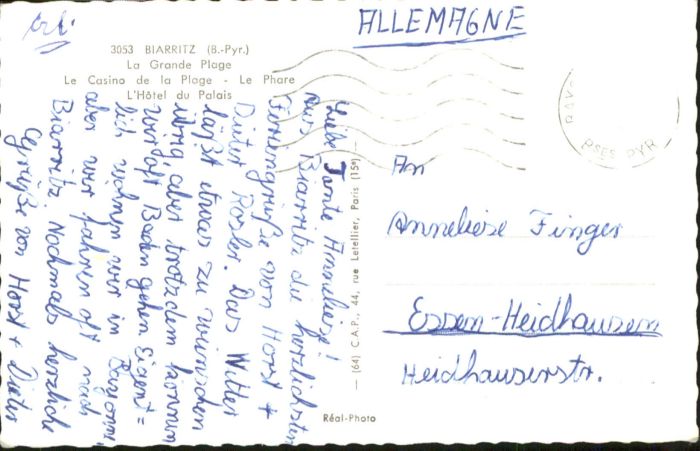 erl.
ALLEMAGNE
3053 BIARRITZ (B.-Pyr.)
La Grande Plage
Le Casino de la Plage - Le Phare
L'Hôtel du Palais
Liebe Tante Anneliese!
Aus Biarritz die herzlichsten
Feriengrüße von Horst +
Dieter Rosler. Das Wetter
läßt etwas zu wünschen
übrig aber trotzdem können
wir oft Baden gehen. Eigent=
lich wohnen wir in Bayonne,
aber wir fahren oft nach
Biarritz. Nochmals herzliche
Grüße von Horst + Dieter
— (64) C.A.P., 44, rue Letellier, Paris (15e) —
Réal-Photo
PSES PYR
An
Anneliese Finger
Essen-Heidhausen
Heidhauserstr.